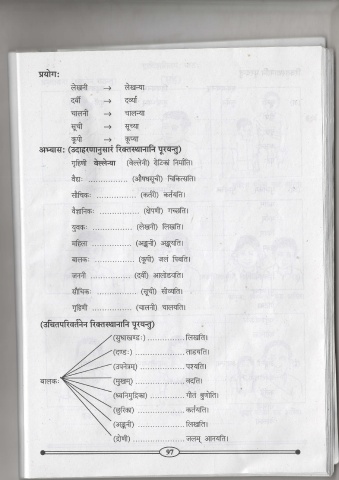 प्रयोगः
लेखनी → लेखन्या
दर्वी → दर्व्या
चालनी → चालन्या
सूची → सूच्या
कूपी → कूप्या
अभ्यासः (उदाहरणानुसारं रिक्तस्थानानि पूरयन्तु)
गृहिणी वेल्लेन्या (वेल्लेनी) रोटिकां निर्माति।
वैद्यः ............... (औषधसूची) चिकित्सति।
सौचिकः ............... (कर्तरी) कर्तयति।
वैज्ञानिकः ............... (क्षेपणी) गच्छति।
युवकः ............... (लेखनी) लिखति।
महिला ............... (अङ्कनी) अङ्कयति।
बालकः ............... (कूपी) जलं पिबति।
जननी ............... (दर्वी) आलोडयति।
सौचिकः ............... (सूची) सीव्यति।
गृहिणी ............... (चालनी) चालयति।
(उचितपरिवर्तनेन रिक्तस्थानानि पूरयन्तु)
(सुधाखण्डः) ............... लिखति।
(दण्डः) ............... ताडयति।
(उपनेत्रम्) ............... पश्यति।
(मुखम्) ............... वदति।
बालकः
(ध्वनिमुद्रिका) ............... गीतं शृणोति।
(छुरिका) ............... कर्तयति।
(अङ्कनी) ............... लिखति।
(द्रोणी) ............... जलम् आनयति।
97